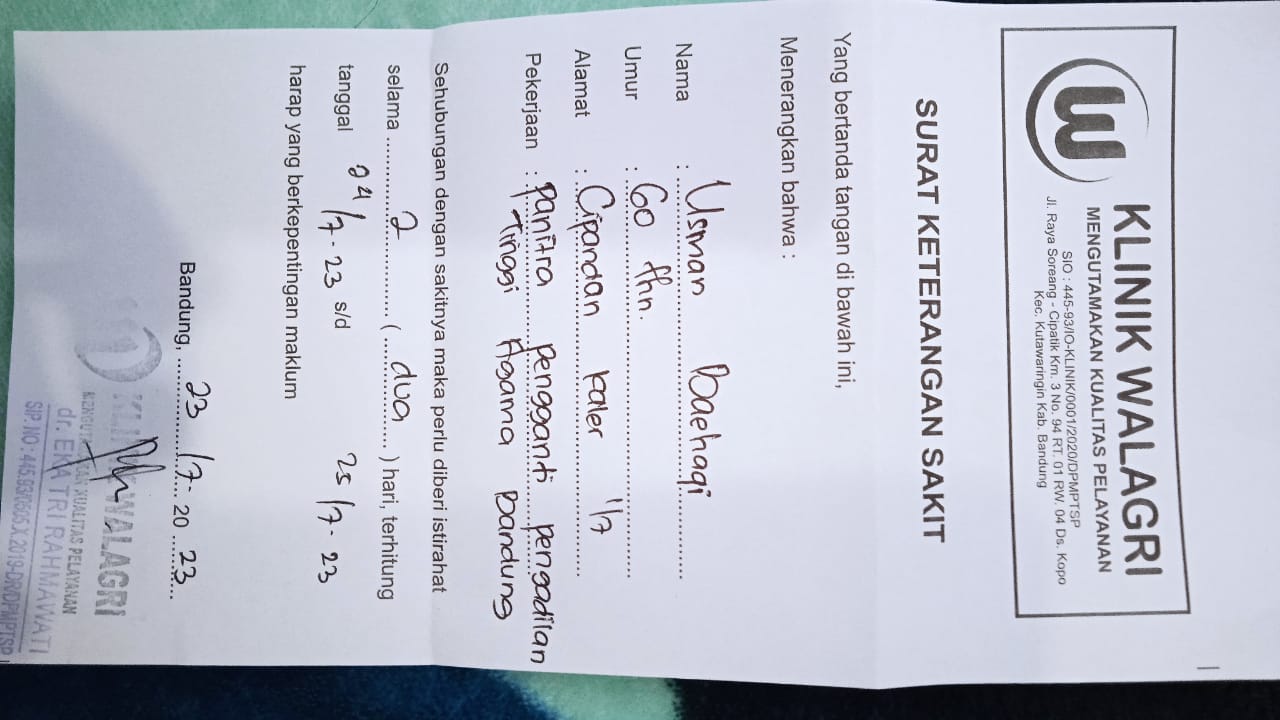 KLINIK WALAGRI
MENGUTAMAKAN KUALITAS PELAYANAN
SIO : 445-93/IO-KLINIK/0001/2020/DPMPTSP
Jl. Raya Soreang - Cipatik Km. 3 No. 94 RT. 01 RW. 04 Ds. Kopo
Kec. Kutawaringin Kab. Bandung
SURAT KETERANGAN SAKIT
Yang bertanda tangan di bawah ini,
Menerangkan bahwa :
Nama : Usman Baehaqi
Umur : 60 thn.
Alamat : Cipandan kaler 1/7
Pekerjaan : panitra pengganti pengadilan
Tinggi Agama Bandung
Sehubungan dengan sakitnya maka perlu diberi istirahat
selama 2 ( dua ) hari, terhitung
tanggal 24/7-23 s/d 25/7-23
harap yang berkepentingan maklum
Bandung, 23/7- 20 23
KLINIK WALAGRI
MENGUTAMAKAN KUALITAS PELAYANAN
dr. EKA TRI RAHMAWATI
SIP. NO : 445.93/0605.X.2019-DR/DPMPTSP